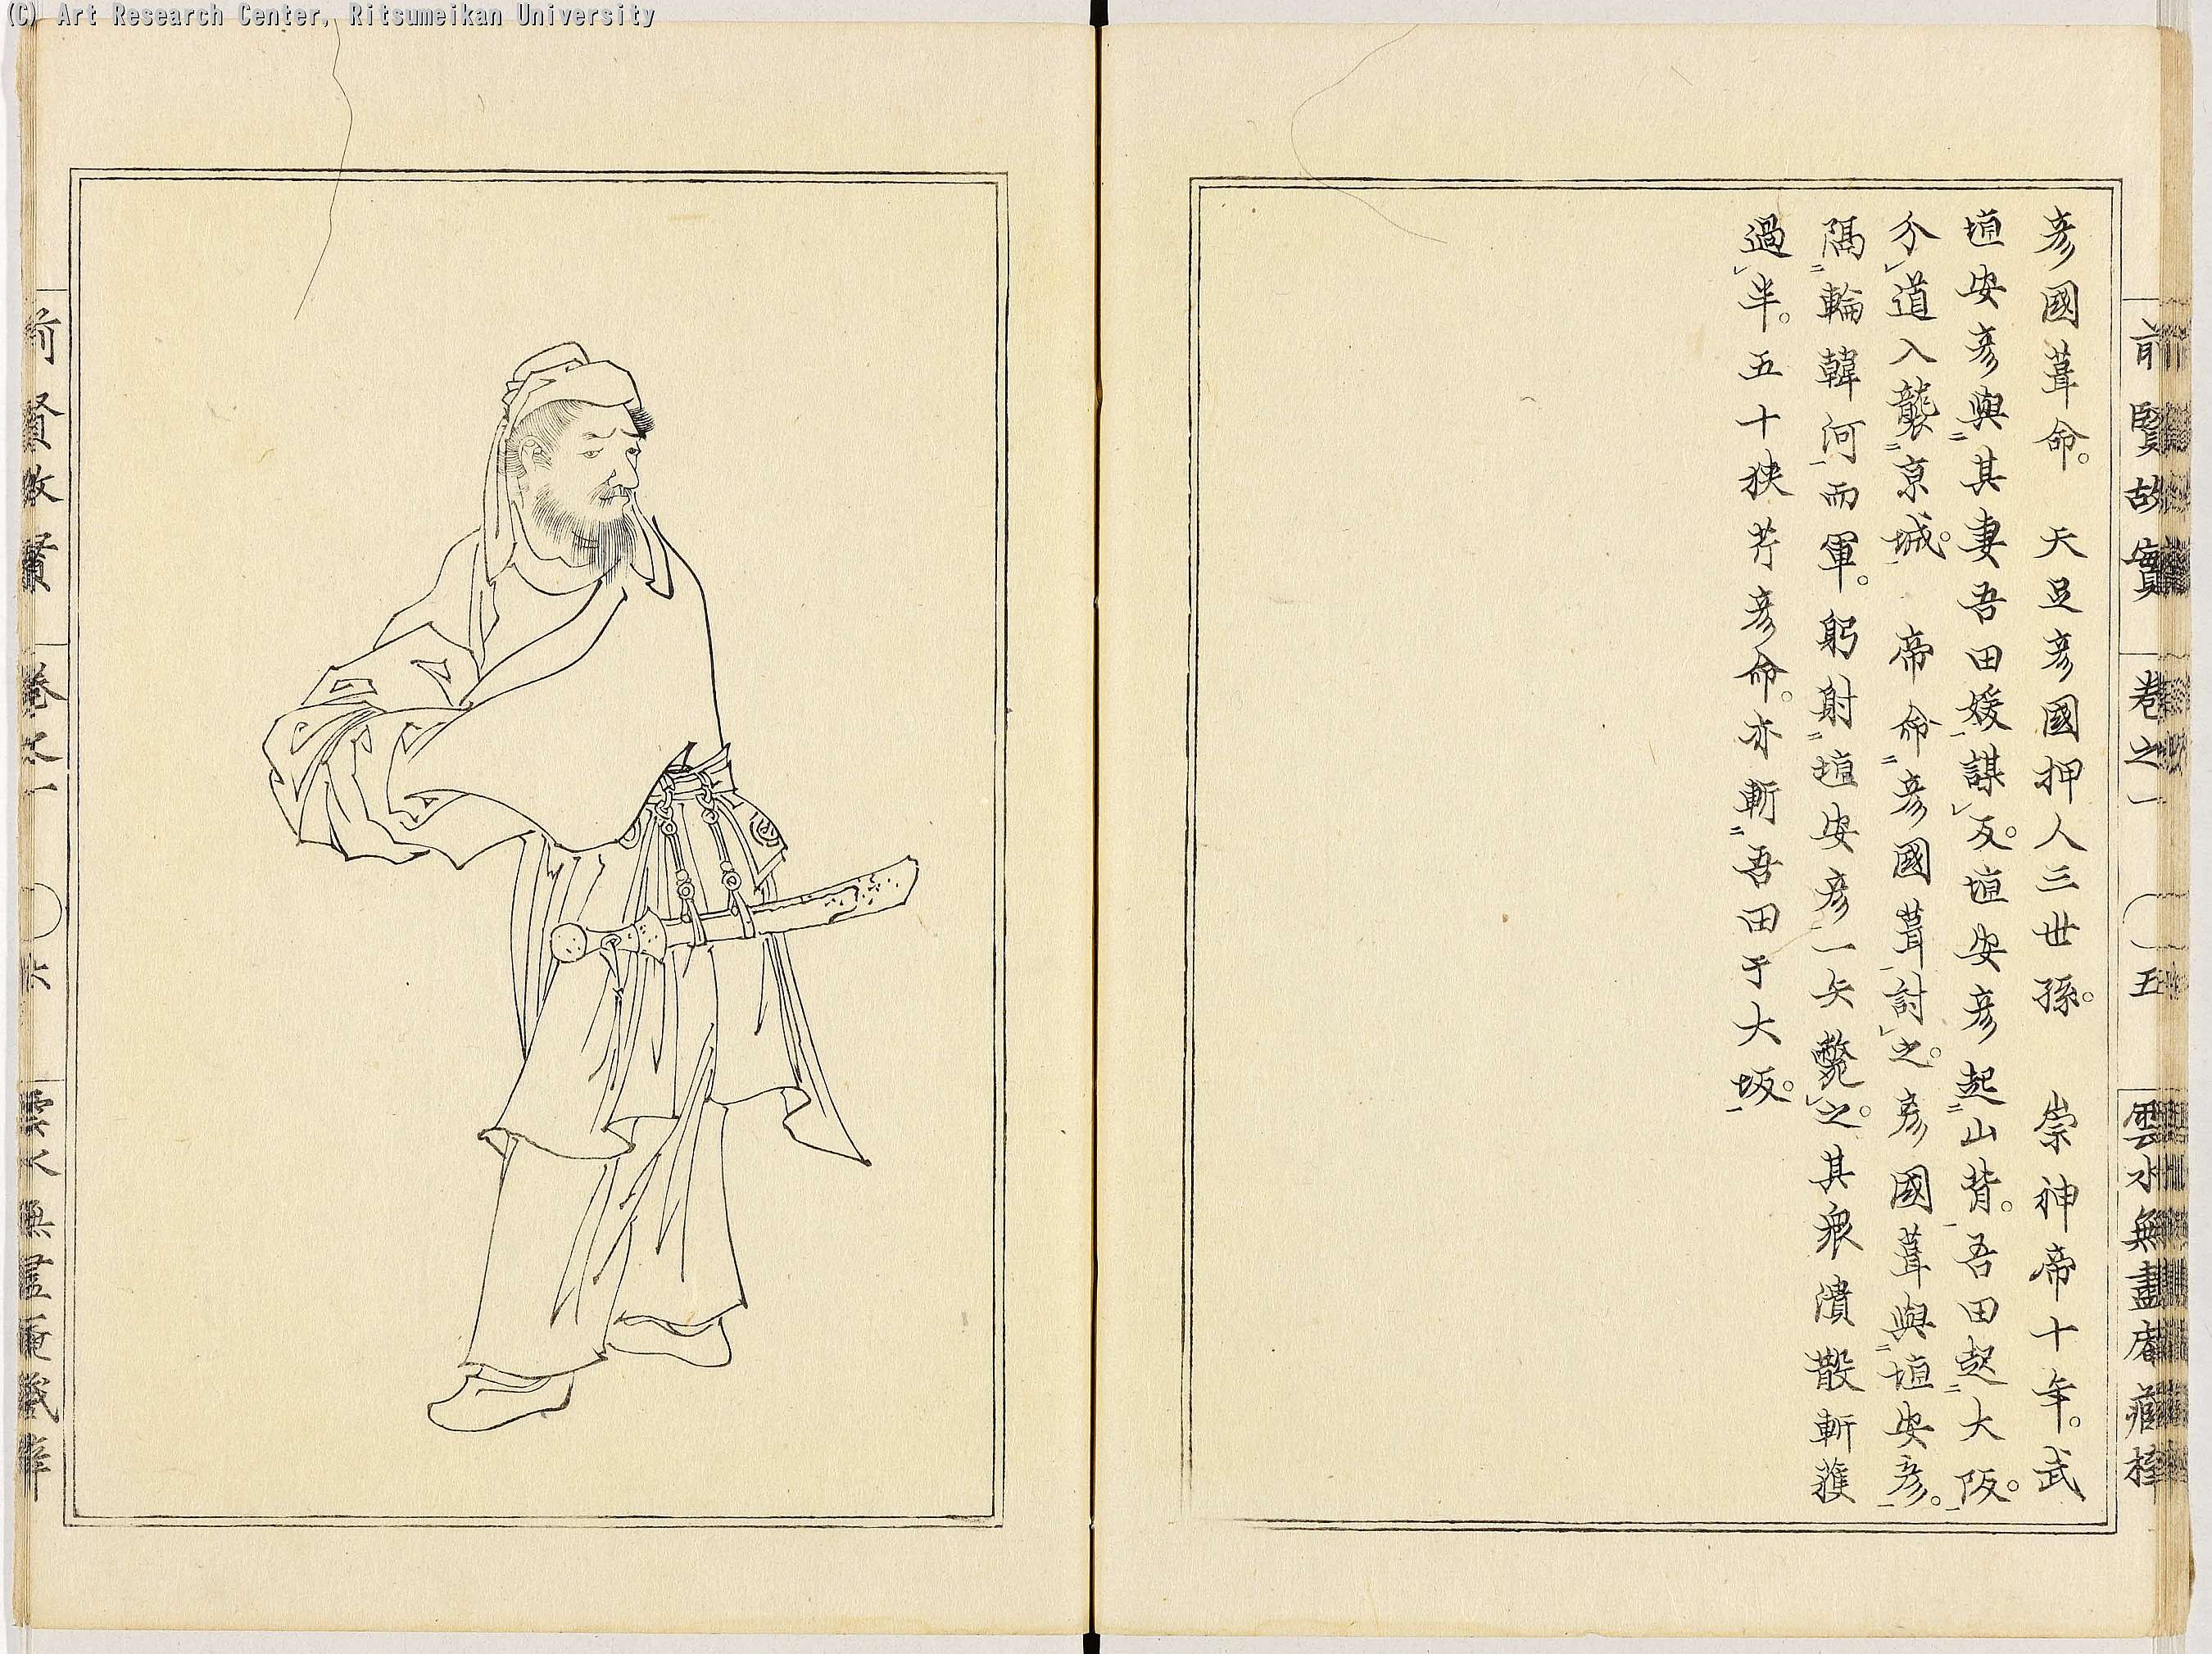 (C) Art Research Center, Ritsumeikan University
前賢故實 卷之一 五 雲水無盡庵藏梓
彦國葺命。天足彦國押人三世孫。 崇神帝十年。武
埴安彦與其妻吾田媛謀反。埴安彦起山背。吾田起大阪。
分道入襲京城。 帝命彦國葺討之。彦國葺與埴安彦。
隔輪韓河而軍。躬射埴安彦一矢斃之。其衆潰散斬獲
過半。五十狹芹彦命。亦斬吾田于大坂。
前賢故實 卷之一 六 雲水無盡庵藏梓